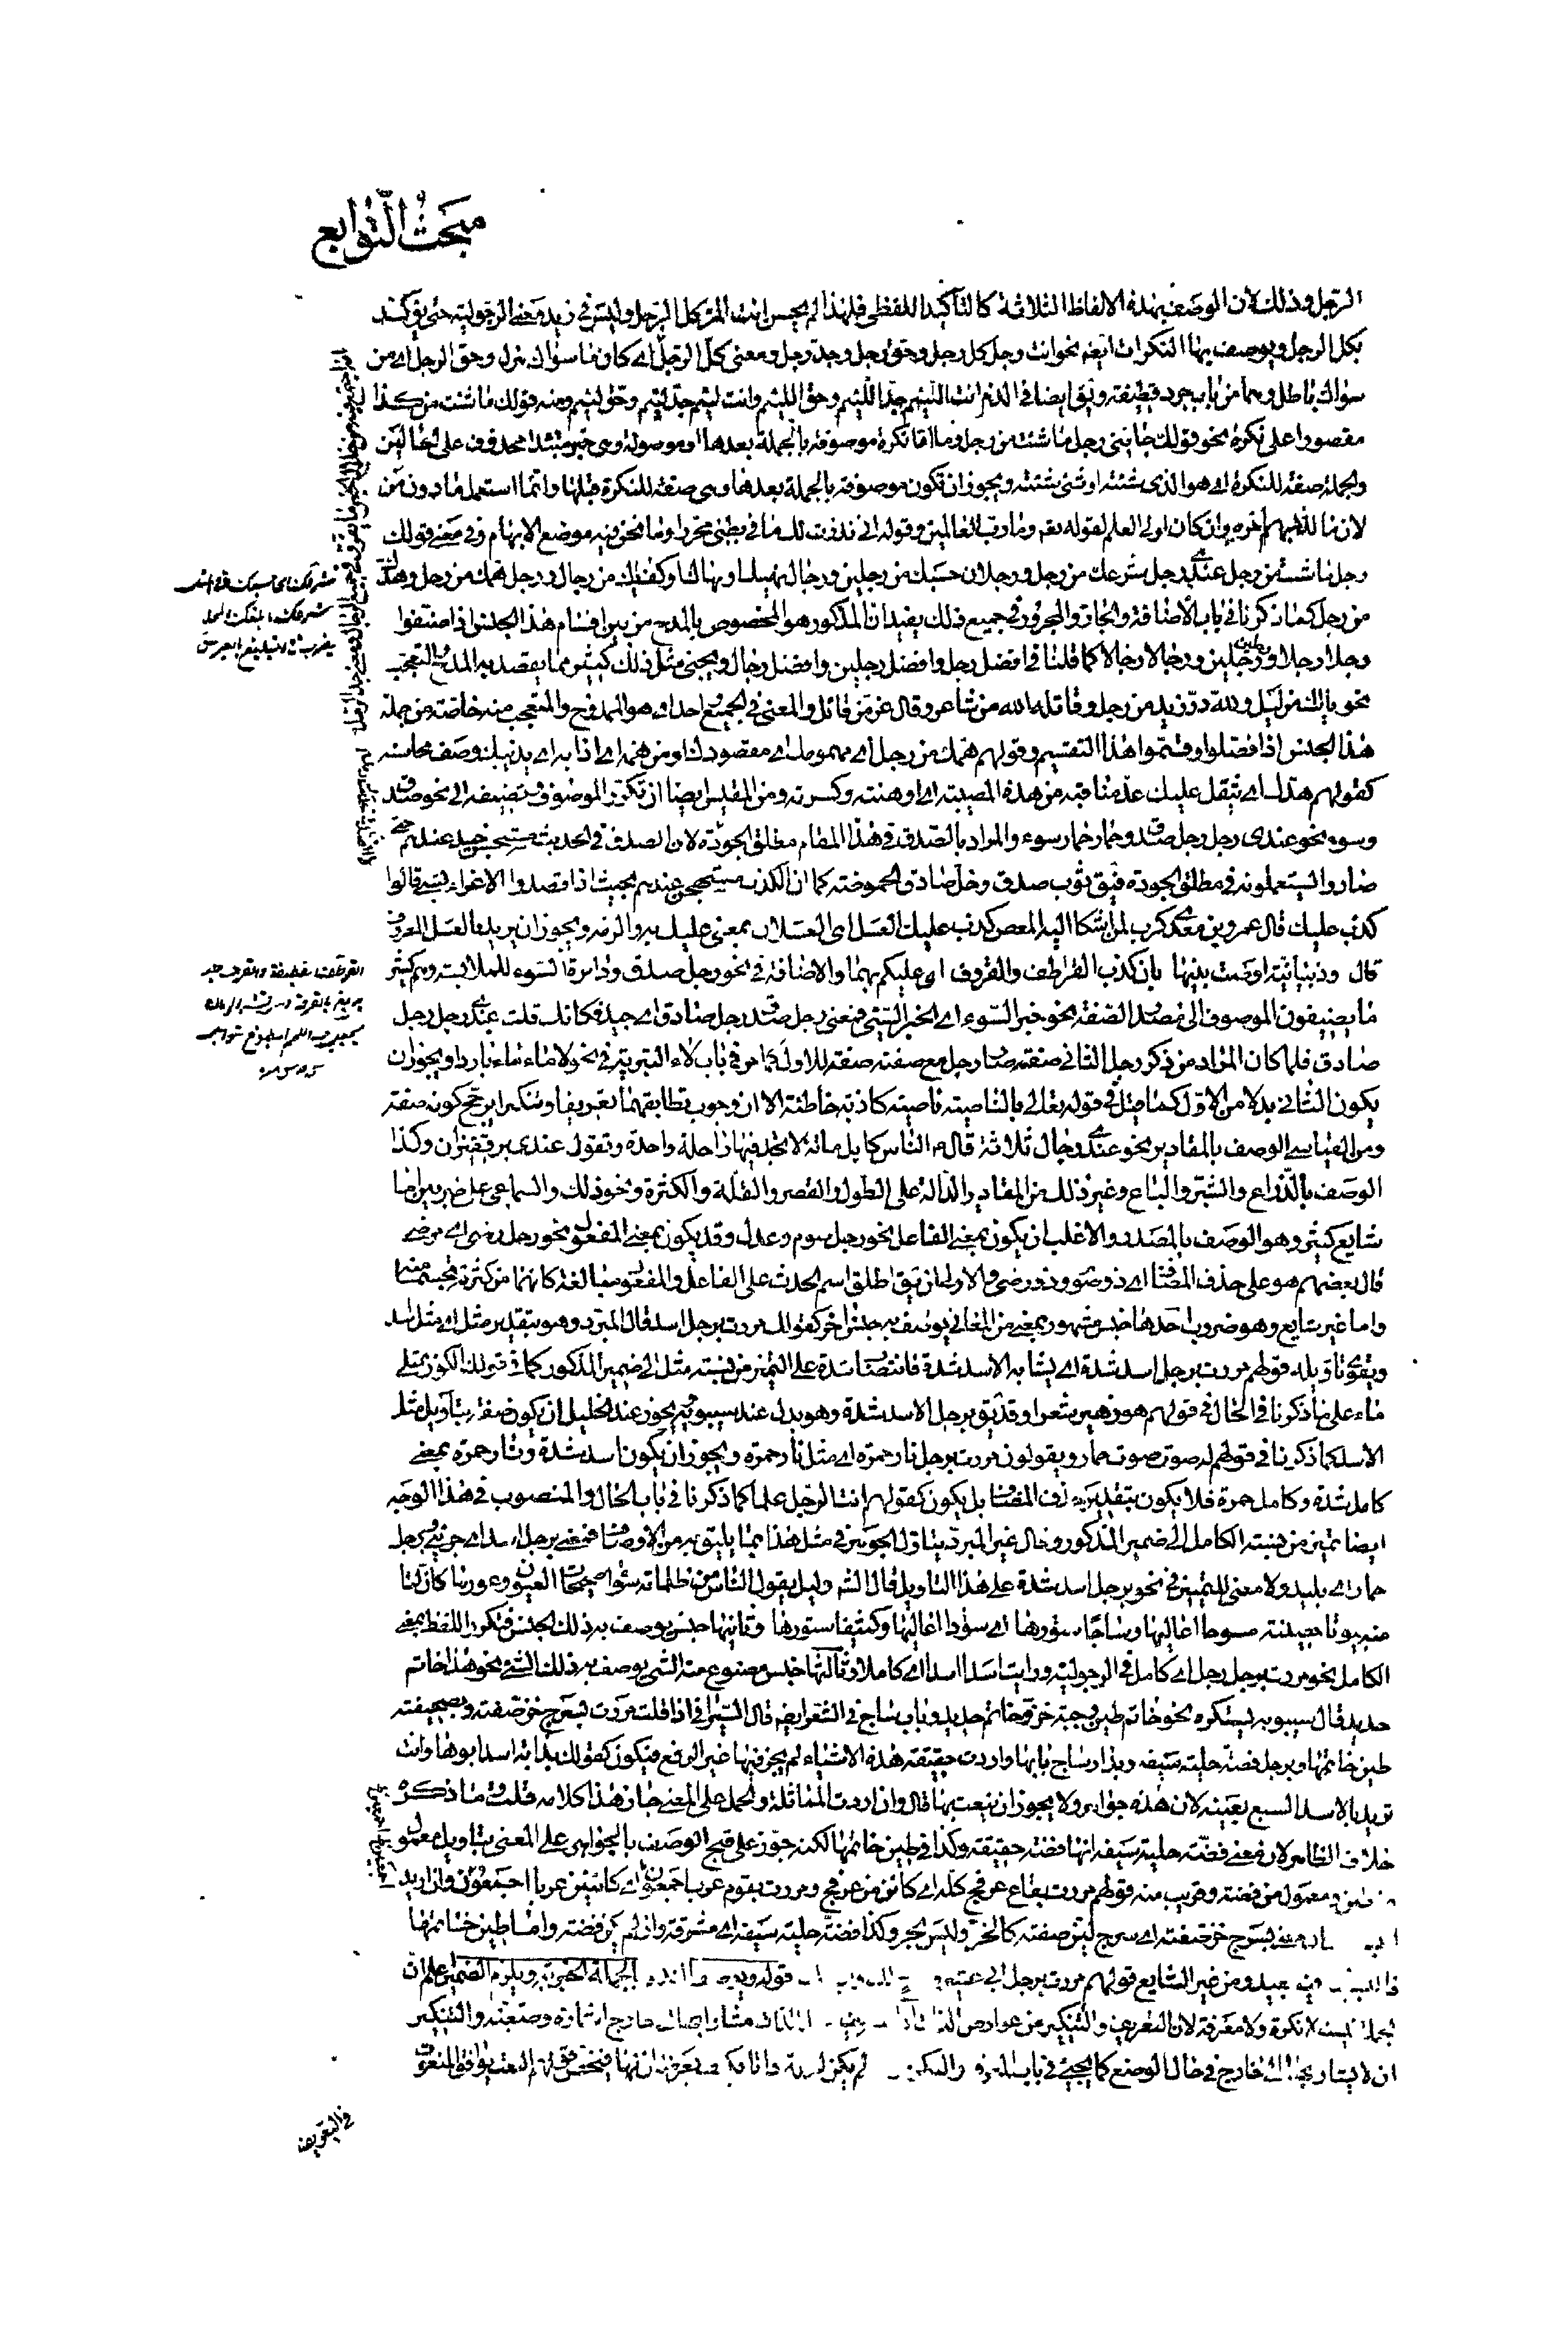 مبحث التوابع
الرجل وذلك لان الوصف بهذه الالفاظ الثلاثة كالتأكيد اللفظى فلهذا لم يحسن انت المرء كل الرجل وليس فى زيد معنى الرجولية حتى يؤكد
بكل الرجل ويوصف بها النكرات ايضا نحو انت رجل كل رجل وحق رجل وجد رجل ومعنى كل الرجل اى كان ما سواك هزل وحق الرجل اى من
سواك باطل وهما من باب جرد قطيفة ويق ايضا فى الذم انت اللئيم جد اللئيم وحق اللئيم وانت لئيم جد لئيم وحق لئيم ومنه قولك ما شئت من كذا
مقصورا على نكرة نحو قولك جائنى رجل ما شئت من رجل وما اما نكرة موصوفة بالجملة بعدها او موصولة وهى خبر مبتدا محذوف على الحالين
والجملة صفة للنكرة اى هو الذى شئته او شئ شئته ويجوز ان تكون موصوفة بالجملة بعدها وهى صفة للنكرة قبلها وانما استعمل ما دون من
لان ما للمبهم امره وان كان اولى العلم لقوله تعم وما رب العالمين وقوله انى نذرت لك ما فى بطنى محررا وما نحن فيه موضع الابهام وفى معنى قولك
رجل ما شئت من رجل عندى رجل شرعك من رجل ورجلان حسبك من رجلين ورجال نهيك وناهيك وكفيك من رجال ورجل همك من رجل وهدك
من رجل كما ذكرنا فى باب الاضافة والجار والمجرور فى جميع ذلك يفيد ان المذكور هو المخصوص بالمدح من بين اقسام هذا الجنس اذا صنفوا
رجلا رجلا ورجلين رجلين ورجالا رجالا كما قلنا فى افضل رجل وافضل رجلين وافضل رجال ويجئ مثل ذلك كثير مما يقصد به المدح والتعجب
نحو يا لك من ليل ولله در زيد من رجل وقاتله الله من شاعر وقال عز من قائل والمعنى فى الجميع احد اى هو الممدوح والمتعجب منه خاصة من جملة
هذا الجنس اذا فصلوا وقسموا هذا التقسيم وقولهم همك من رجل اى مهمومك اى مقصودك او من همه اى اذابه اى يذيبك وصف محاسنه
كقولهم هدك اى يثقل عليك عد مناقبه من هذه المصيبة اى اوهنته وكسرته ومن المقيس ايضا ان تكرر الموصوف وتضيفه الى نحو صدق
وسوء نحو عندى رجل رجل صدق وحمار حمار سوء والمراد بالصدق فى هذا المقام مطلق الجودة لان الصدق فى الحديث مستحسن جيد عندهم حتى
صاروا يستعملونه فى مطلق الجودة فيق ثوب صدق وخل صادق الحموضة كما ان الكذب مستهجن عندهم بحيث اذا قصدوا الاغراء بشئ قالوا
كذب عليك قال عمرو بن معدى كرب لمن شكا اليه المعص كذب عليك العسل اى العسلان بمعنى عليك به والزمه ويجوز ان يريد به العسل المعروف
قال وذبيانية اوصت بنيها بان كذب القراطف والقروف اى عليكم بهما والاضافة فى نحو رجل صدق ودائرة السوء للملابسة وهم كثير
ما يضيفون الموصوف الى مصدر الصفة نحو خبر السوء اى الخبر السيئ فمعنى رجل صدق رجل صادق اى جيد فكانك قلت عندى رجل رجل
صادق فلما كان المراد من ذكر رجل الثانى صفته صار رجل مع صفته صفة للاول كما مر فى باب لاء التبرية فى نحو لا ماء ماء باردا ويجوز ان
يكون الثانى بدلا من الاول كما قيل فى قوله تعالى بالناصية ناصية كاذبة خاطئة الا ان وجوب تطابقهما تعريفا وتنكيرا يرجح كونه صفة
ومن القياسى الوصف بالمقادير نحو عندى رجال ثلاثة قال ص الناس كابل مائة لا تجد فيها راحلة واحدة وتقول عندى بر قفيزان وكذا
الوصف بالذراع والشبر والباع وغير ذلك من المقادير الدالة على الطول والقصر والقلة والكثرة ونحو ذلك والسماعى على ضربين اما
شايع كثير وهو الوصف بالمصدر والاغلب ان يكون بمعنى الفاعل نحو رجل صوم وعدل وقد يكون بمعنى المفعول نحو رجل رضى اى مرضى
قال بعضهم هو على حذف المضاف اى ذو صوم وذو رضى والاولى ان يق اطلق اسم الحدث على الفاعل والمفعول مبالغة كانهما من كثرة الفعل تجسما منه
واما غير شايع وهو ضروب احدها جنس مشهور بمعنى من المعانى يوصف به جنس اخر كقولك مررت برجل اسد قال المبرد وهو بتقدير مثل اى مثل اسد
ويقوى تاويله قولهم مررت برجل اسد شدة اى يشابه الاسد شدة فانتصاب شدة على التميز من نسبة مثل الى ضمير المذكور كما فى قولك الكوز ممتلى
ماء على ما ذكرنا فى الحال فى قولهم هو زهير شعرا وقد يق برجل الاسد شدة وهو بدل عند سيبويه يجوز عند الخليل ان يكون صفة بتأويل مثل
الاسد كما ذكرنا فى قولهم له صوت صوت حمار ويقولون مررت برجل نار حمرة اى مثل نار حمرة ويجوز ان يكونا اسد شدة ونار حمرة بمعنى
كامل شدة وكامل حمرة فلا يكون بتقدير حذف المضاف بل يكون كقولهم انت الرجل علما كما ذكرنا فى باب الحال والمنصوب فى هذا الوجه
ايضا تميز من نسبة الكامل الى ضمير المذكور وقال غير المبرد يتاول الجوهر فى مثل هذا بما يليق به من الاوصاف فمعنى برجل اسد اى جرئ وبرجل
حمار اى بليد ولا معنى للتميز فى نحو برجل اسد شدة على هذا التاويل قال الشاعر وليل يقول الناس من ظلماته سواء صحيحات العيون وعورها كان لنا
منه بيوتا حصينة مسوحا اعاليها وساجا ستورها اى سودا اعاليها وكثيفا ستورها وثانيها جنس يوصف به ذلك الجنس فيكرر اللفظ بمعنى
الكامل نحو مررت برجل رجل اى كامل فى الرجولية ورايت اسدا اسدا اى كاملا وثالثها جنس مصنوع منه الشئ يوصف به ذلك الشئ نحو هذا خاتم
حديد قال سيبويه يستكره نحو خاتم طين وجبة خز وخاتم حديد وباب ساج فى الشعر ايضا قال السيرافى اذا قلت مررت بسرج خز صفته وبصحيفة
طين خاتمها وبرجل فضة حلية سيفه وبدار ساج بابها واردت حقيقة هذه الاشياء لم يجز فيها غير الرفع فيكون كقولك بدابة اسد ابوها وانت
تريد بالاسد السبع بعينه لان هذه جواهر ولا يجوز ان ينعت بها قال وان اردت المماثلة والحمل على المعنى جاز هذا كلامه قلت وما ذكره
خلاف الظاهر لان معنى فضة حلية سيفه انها فضة حقيقة وكذا فى طين خاتمها لكنه جوز على قبح الوصف بالجواهر على المعنى بتاويل معمول
من طين ومعمول من فضة وقريب منه قولهم مررت بقاع عرفج كله اى كائن من عرفج ومررت بقوم عرب اجمعون اى كائنين عربا اجمعون وان اريد
بسرج خز صفته اى سرج لين صفته كالخز وليس بخز وكذا فضة حلية سيفه اى مشرقة وان لم يكن فضة واما طين خاتمها
بعيد ومن غير الشايع قولهم مررت برجل ابى عشرة قوله ويوصف بالجملة الخبرية ويلزم الضمير اعلم ان
الجملة ليست نكرة ولا معرفة لان التعريف والتنكير من عوارض الذات مشارا بها الى خارج اشارة وضعية والتنكير
ان لا يشار بها الى خارج فى حال الوضع كما يجئ فى باب المعرفة والنكرة فنحو قولهم النعت يوافق المنعوت
فى التعريف